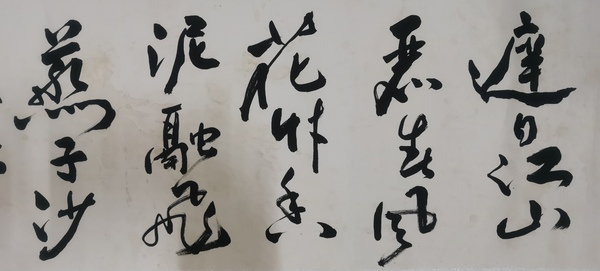 遲日江山
麗春風
花艸香
泥融飛
燕子沙